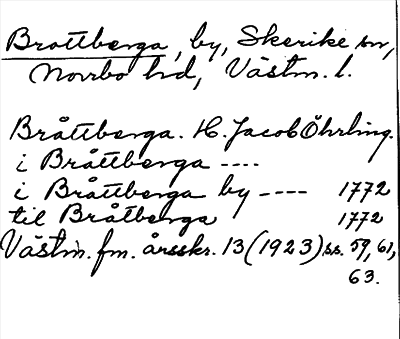 Brottberga, by, Skerike sn,
Norrbo hd, Västm. l.
Bråttberga. H. Jacob Öhrling.
i Bråttberga ----
i Bråttberga by ---- 1772
til Bråtberga 1772
Västm. fm. årsskr. 13 (1923) ss. 59, 61,
63.